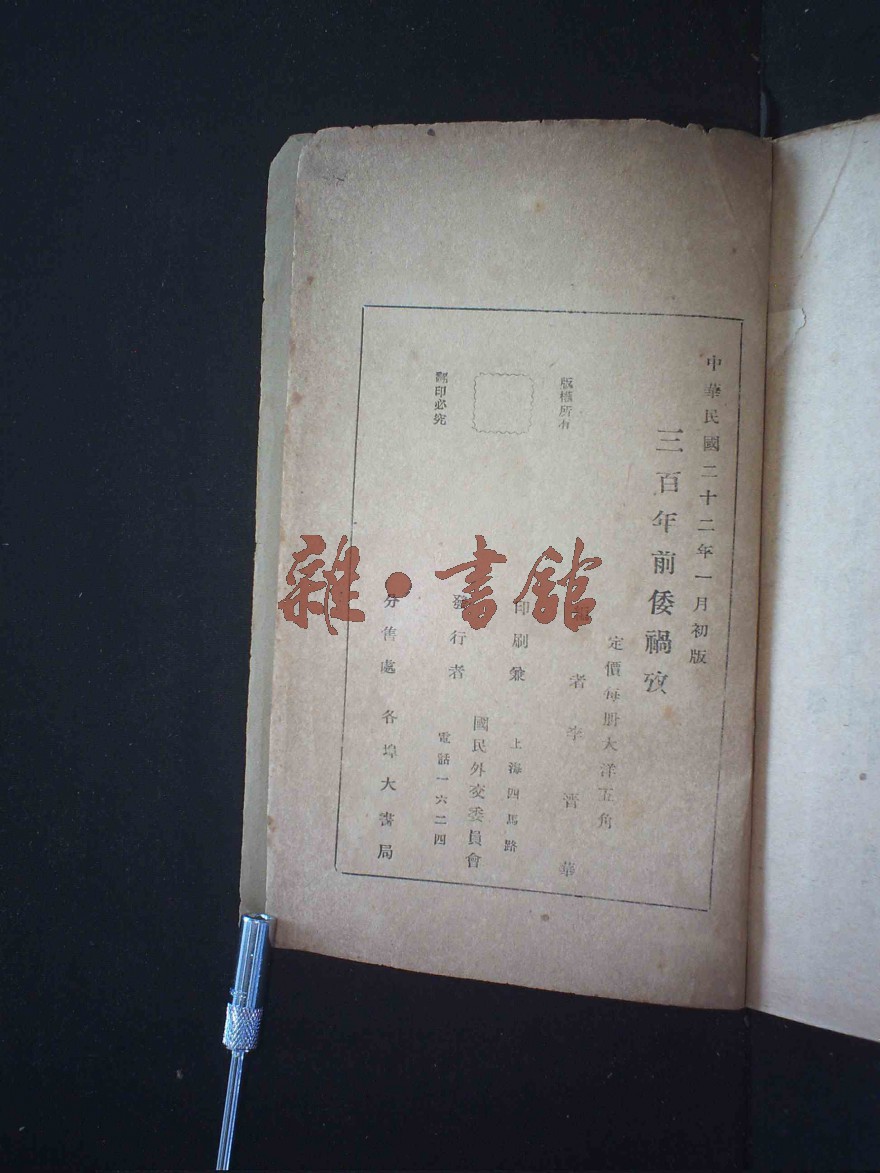 中華民國二十二年一月初版
三百年前倭禍攷
定價每册大洋五角
者 李晋華
印刷 上海四馬路
發行者 國民外交委員會
電話一六二四
分售處 各埠大書局
版權所有
翻印必究
雜·書館